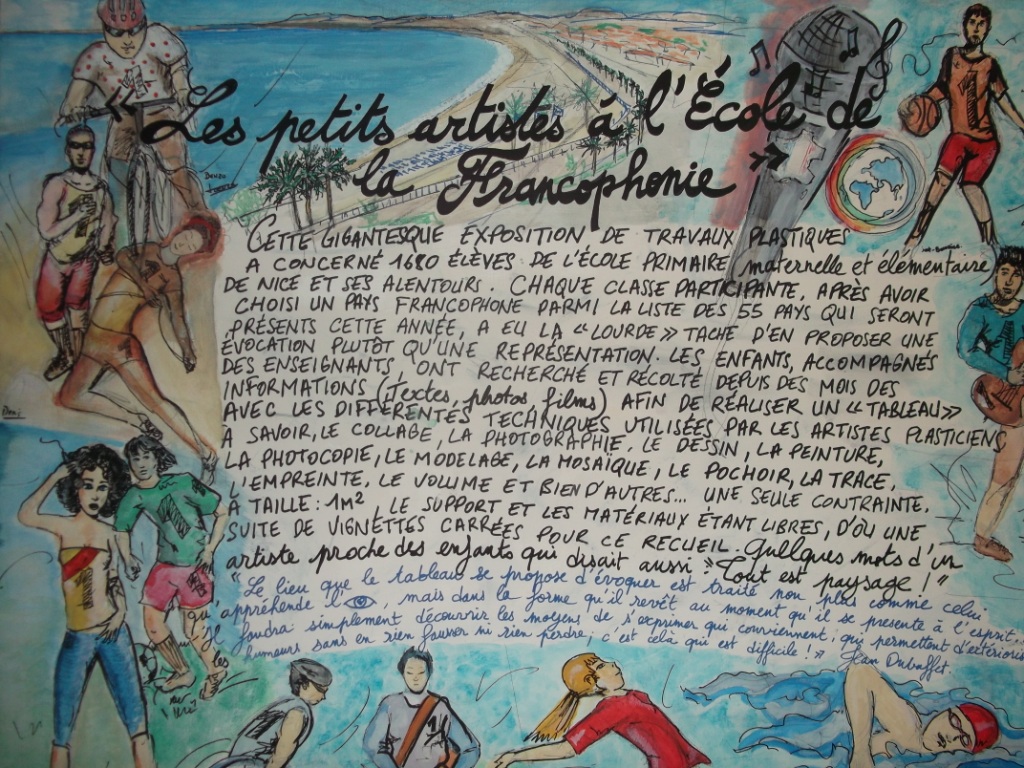 « Les petits artistes à l'École de
la Francophonie »
CETTE GIGANTESQUE EXPOSITION DE TRAVAUX PLASTIQUES
A CONCERNÉ 1680 ÉLÈVES DE L'ÉCOLE PRIMAIRE, maternelle et élémentaire
DE NICE ET SES ALENTOURS. CHAQUE CLASSE PARTICIPANTE, APRÈS AVOIR
CHOISI UN PAYS FRANCOPHONE PARMI LA LISTE DES 55 PAYS QUI SERONT
PRÉSENTS CETTE ANNÉE, A EU LA « LOURDE » TACHE D'EN PROPOSER UNE
ÉVOCATION PLUTÔT QU'UNE REPRÉSENTATION. LES ENFANTS, ACCOMPAGNÉS
DES ENSEIGNANTS, ONT RECHERCHÉ ET RÉCOLTÉ DEPUIS DES MOIS DES
INFORMATIONS (Textes, photos, films) AFIN DE RÉALISER UN « TABLEAU »
AVEC LES DIFFÉRENTES TECHNIQUES UTILISÉES PAR LES ARTISTES PLASTICIENS,
À SAVOIR, LE COLLAGE, LA PHOTOGRAPHIE, LE DESSIN, LA PEINTURE,
LA PHOTOCOPIE, LE MODELAGE, LA MOSAÏQUE, LE POCHOIR, LA TRACE,
L'EMPREINTE, LE VOLUME ET BIEN D'AUTRES... UNE SEULE CONTRAINTE,
A TAILLE : 1m², LE SUPPORT ET LES MATÉRIAUX ÉTANT LIBRES, D'OÙ UNE
SUITE DE VIGNETTES CARRÉES POUR CE RECUEIL. Quelques mots d'un
artiste proche des enfants qui disait aussi : » Tout est paysage ! »
« Le lieu que le tableau se propose d'évoquer est traité non plus comme celui
qu'appréhende l', mais dans la forme qu'il revêt au moment qu'il se présente à l'esprit...
Il faudra simplement découvrir les moyens de s'exprimer qui conviennent, qui permettent d'extérioriser les
humeurs sans en rien fausser ni rien perdre, c'est celà qui est difficile ! » Jean Dubuffet.